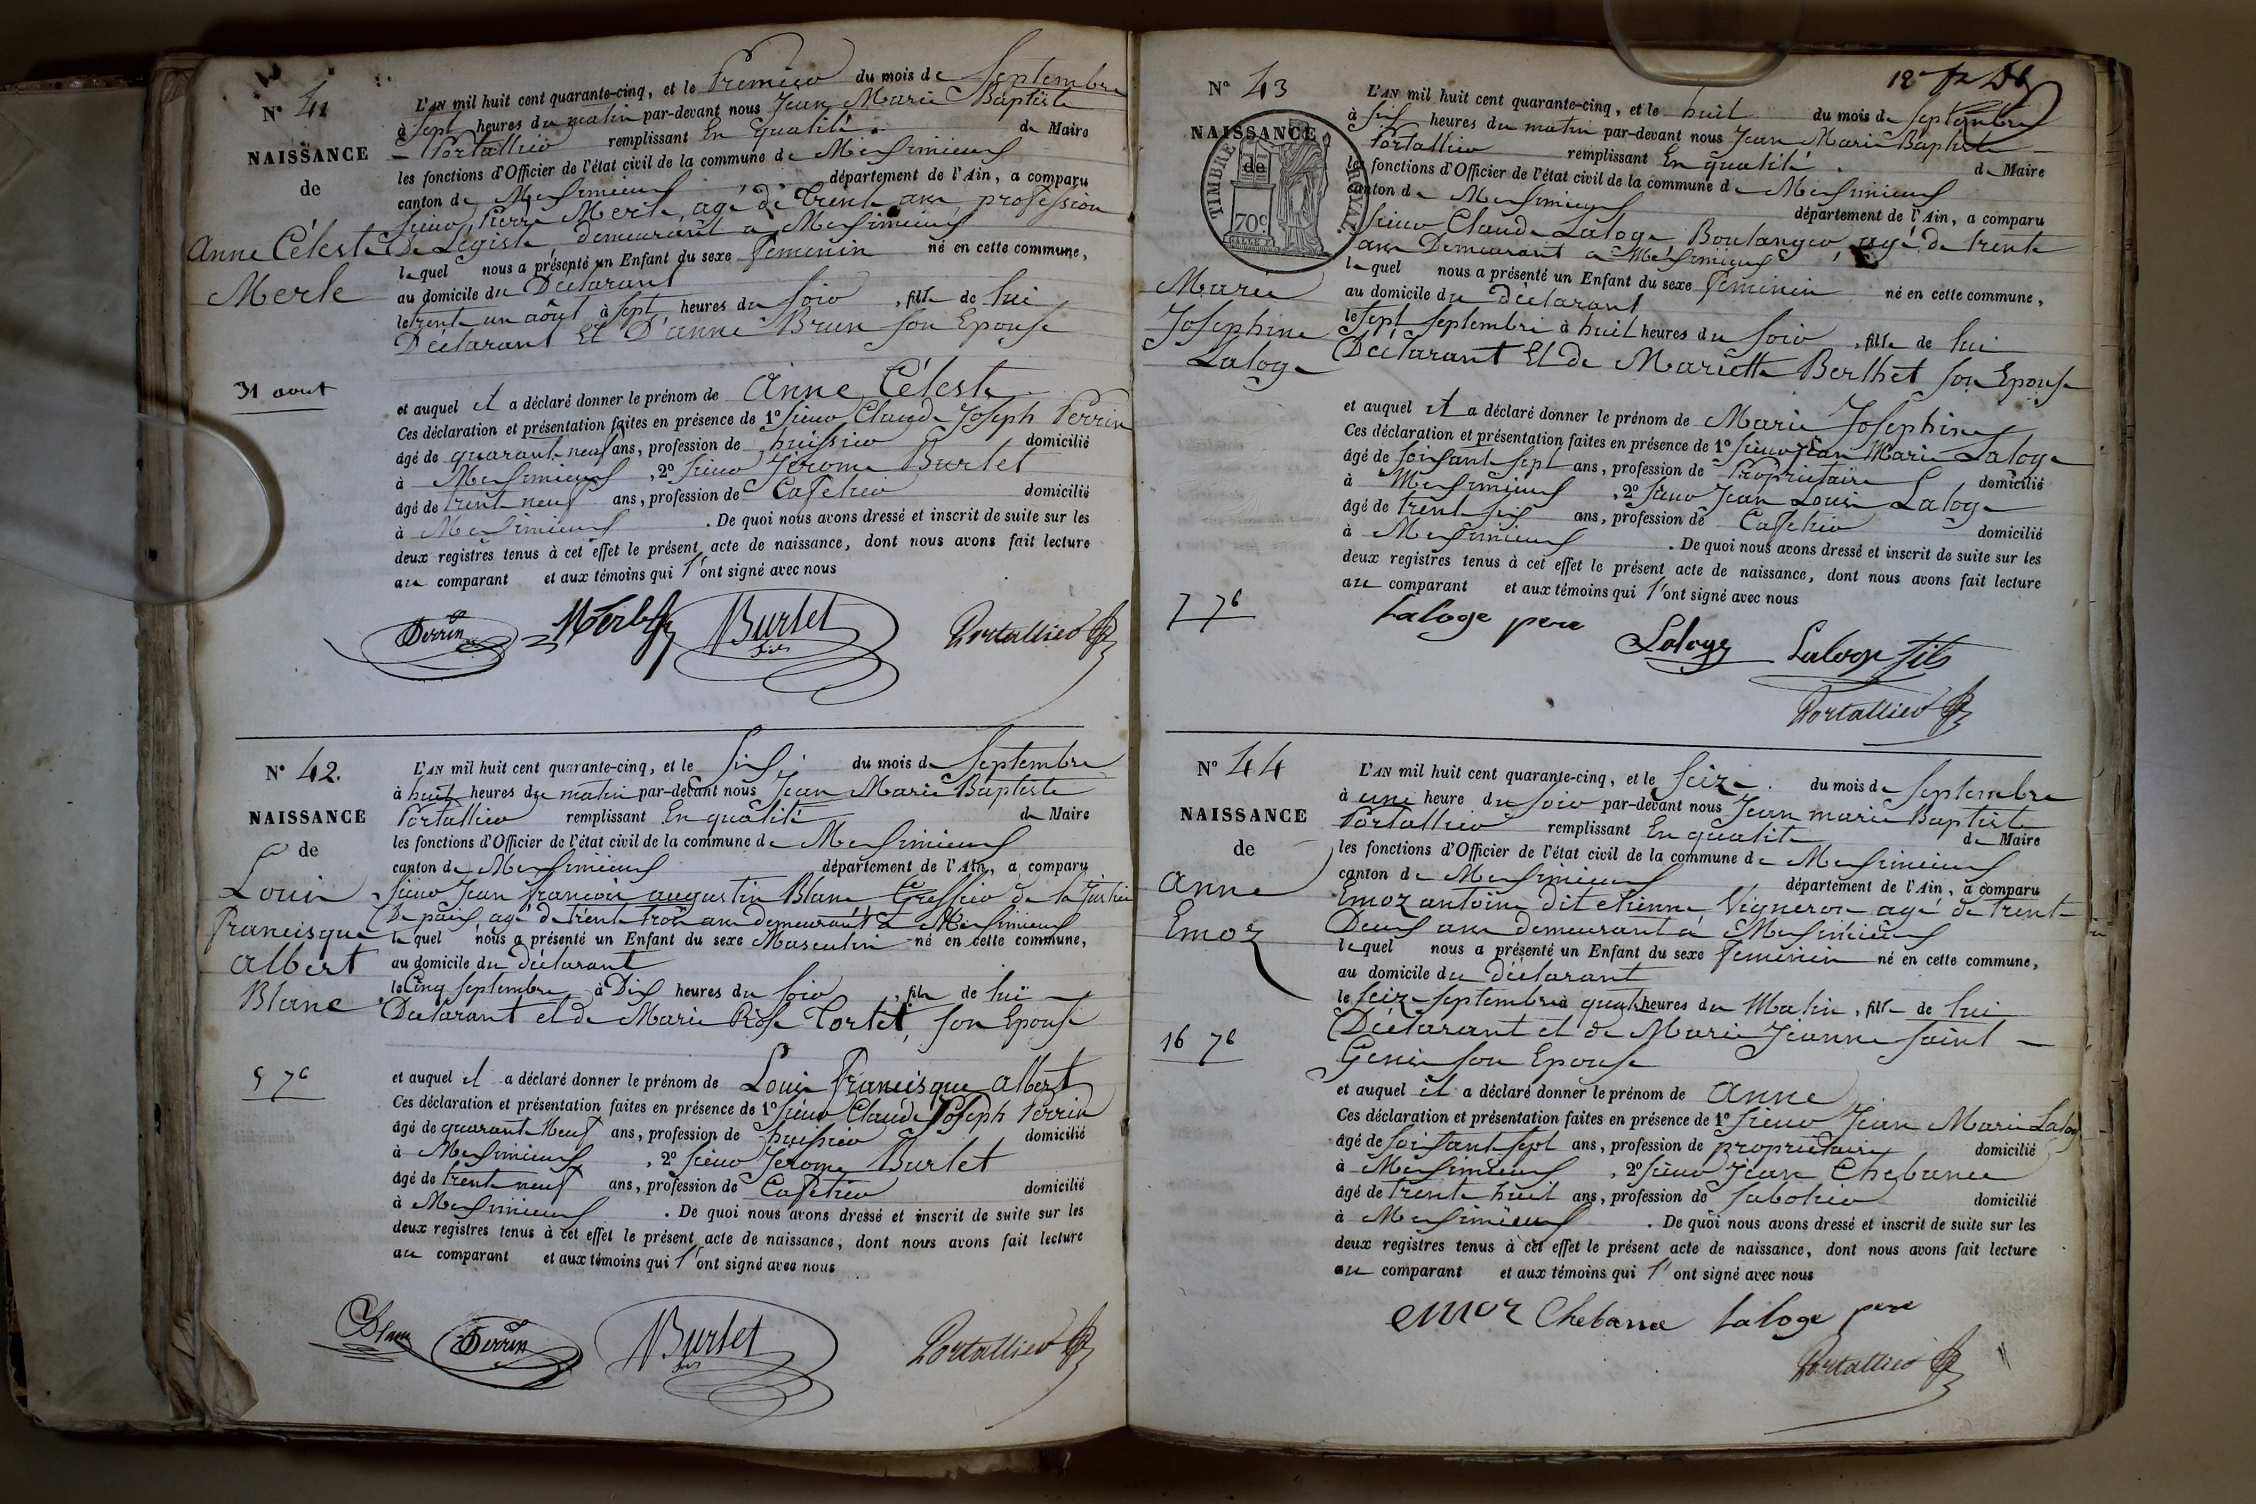 N° 41
NAISSANCE
de
Anne Céleste
Merle
31 aout
L'AN mil huit cent quarante-cinq, et le Premier du mois de Septembre
à Sept heures du matin par-devant nous Jean Marie Baptiste
Portallier remplissant En qualité de Maire
les fonctions d'Officier de l'état civil de la commune de Meximieux
canton de Meximieux département de l'Ain, a comparu
Sieur Pierre Merle, agé de trente ans, profession
De Légiste, demeurant a Meximieux
lequel nous a présenté un Enfant du sexe femenin né en cette commune,
au domicile du Déclarant
le trente un août à sept heures du soir, fille de lui
Déclarant Et D'anne Brun son Epouse
et auquel il a déclaré donner le prénom de Anne Céleste
Ces déclaration et présentation faites en présence de 1° Sieur Claude Joseph Perrin
âgé de quarante neuf ans, profession de huissier domicilié
à Meximieux, 2° Sieur Jérome Burlet
âgé de trente neuf ans, profession de Cafetier domicilié
à Meximieux. De quoi nous avons dressé et inscrit de suite sur les
deux registres tenus à cet effet le présent acte de naissance, dont nous avons fait lecture
au comparant et aux témoins qui l'ont signé avec nous
Perrin Merle Burlet fils Portallier
N° 42.
NAISSANCE
de
Louis
francisque
albert
Blanc
5 7b
L'AN mil huit cent quarante-cinq, et le Six du mois de Septembre
à huit heures du matin par-devant nous Jean Marie Baptiste
Portallier remplissant En qualité de Maire
les fonctions d'Officier de l'état civil de la commune de Meximieux
canton de Meximieux département de l'Ain, a comparu
Sieur Jean françois augustin Blanc Greffier de la Justice
De paix agé de trente trois ans demeurant a Meximieux
lequel nous a présenté un Enfant du sexe Masculin né en cette commune,
au domicile du déclarant
le Cinq Septembre à Dix heures du soir, fils de lui
Déclarant et de Marie Rose Tortet, son Epouse
et auquel il a déclaré donner le prénom de Louis francisque albert
Ces déclaration et présentation faites en présence de 1° Sieur Claude Joseph Perrin
âgé de quarante Neuf ans, profession de huissier domicilié
à Meximieux, 2° Sieur Jerome Burlet
âgé de trente neuf ans, profession de Cafetier domicilié
à Meximieux. De quoi nous avons dressé et inscrit de suite sur les
deux registres tenus à cet effet le présent acte de naissance, dont nous avons fait lecture
au comparant et aux témoins qui l'ont signé avec nous
Blanc Perrin Burlet fils Portallier
N° 43
NAISSANCE
de
TIMBRE ROYAL
70c
Marie
Josephine
Laloge
7 7b
L'AN mil huit cent quarante-cinq, et le huit du mois de Septembre
à six heures du matin par-devant nous Jean Marie Baptiste
Portallier remplissant En qualité de Maire
les fonctions d'Officier de l'état civil de la commune de Meximieux
canton de Meximieux département de l'Ain, a comparu
Sieur Claude Laloge Boulanger, agé de trente
ans Demeurant a Meximieux
lequel nous a présenté un Enfant du sexe femenin né en cette commune,
au domicile du déclarant
le sept Septembre à huit heures du soir, fille de lui
Déclarant Et de Mariette Berthet son Epouse
et auquel il a déclaré donner le prénom de Marie Josephine
Ces déclaration et présentation faites en présence de 1° Sieur Jean Marie Laloge
âgé de soixante sept ans, profession de Propriétaire domicilié
à Meximieux, 2° Sieur Jean Louis Laloge
âgé de trente six ans, profession de Cafetier domicilié
à Meximieux. De quoi nous avons dressé et inscrit de suite sur les
deux registres tenus à cet effet le présent acte de naissance, dont nous avons fait lecture
au comparant et aux témoins qui l'ont signé avec nous
Laloge pere Laloge Laloge fils
Portallier
N° 44
NAISSANCE
de
anne
Emoz
16 7b
L'AN mil huit cent quarante-cinq, et le Seize du mois de Septembre
à une heure du soir par-devant nous Jean marie Baptiste
Portallier remplissant En qualité de Maire
les fonctions d'Officier de l'état civil de la commune de Meximieux
canton de Meximieux département de l'Ain, a comparu
Emoz antoine dit etienne, Vigneron agé de trente
Deux ans demeurant a Meximieux
lequel nous a présenté un Enfant du sexe femenin né en cette commune,
au domicile du déclarant
le seize septembre à quatre heures du Matin, fille de lui
Déclarant et de Marie Jeanne Saint
Genis son Epouse
et auquel il a déclaré donner le prénom de anne
Ces déclaration et présentation faites en présence de 1° Sieur Jean Marie Laloge
âgé de soixante sept ans, profession de propriétaire domicilié
à Meximieux, 2° Sieur Jean Chebance
âgé de trente huit ans, profession de Sabotier domicilié
à Meximieux. De quoi nous avons dressé et inscrit de suite sur les
deux registres tenus à cet effet le présent acte de naissance, dont nous avons fait lecture
au comparant et aux témoins qui l'ont signé avec nous
emoz Chebance Laloge pere
Portallier